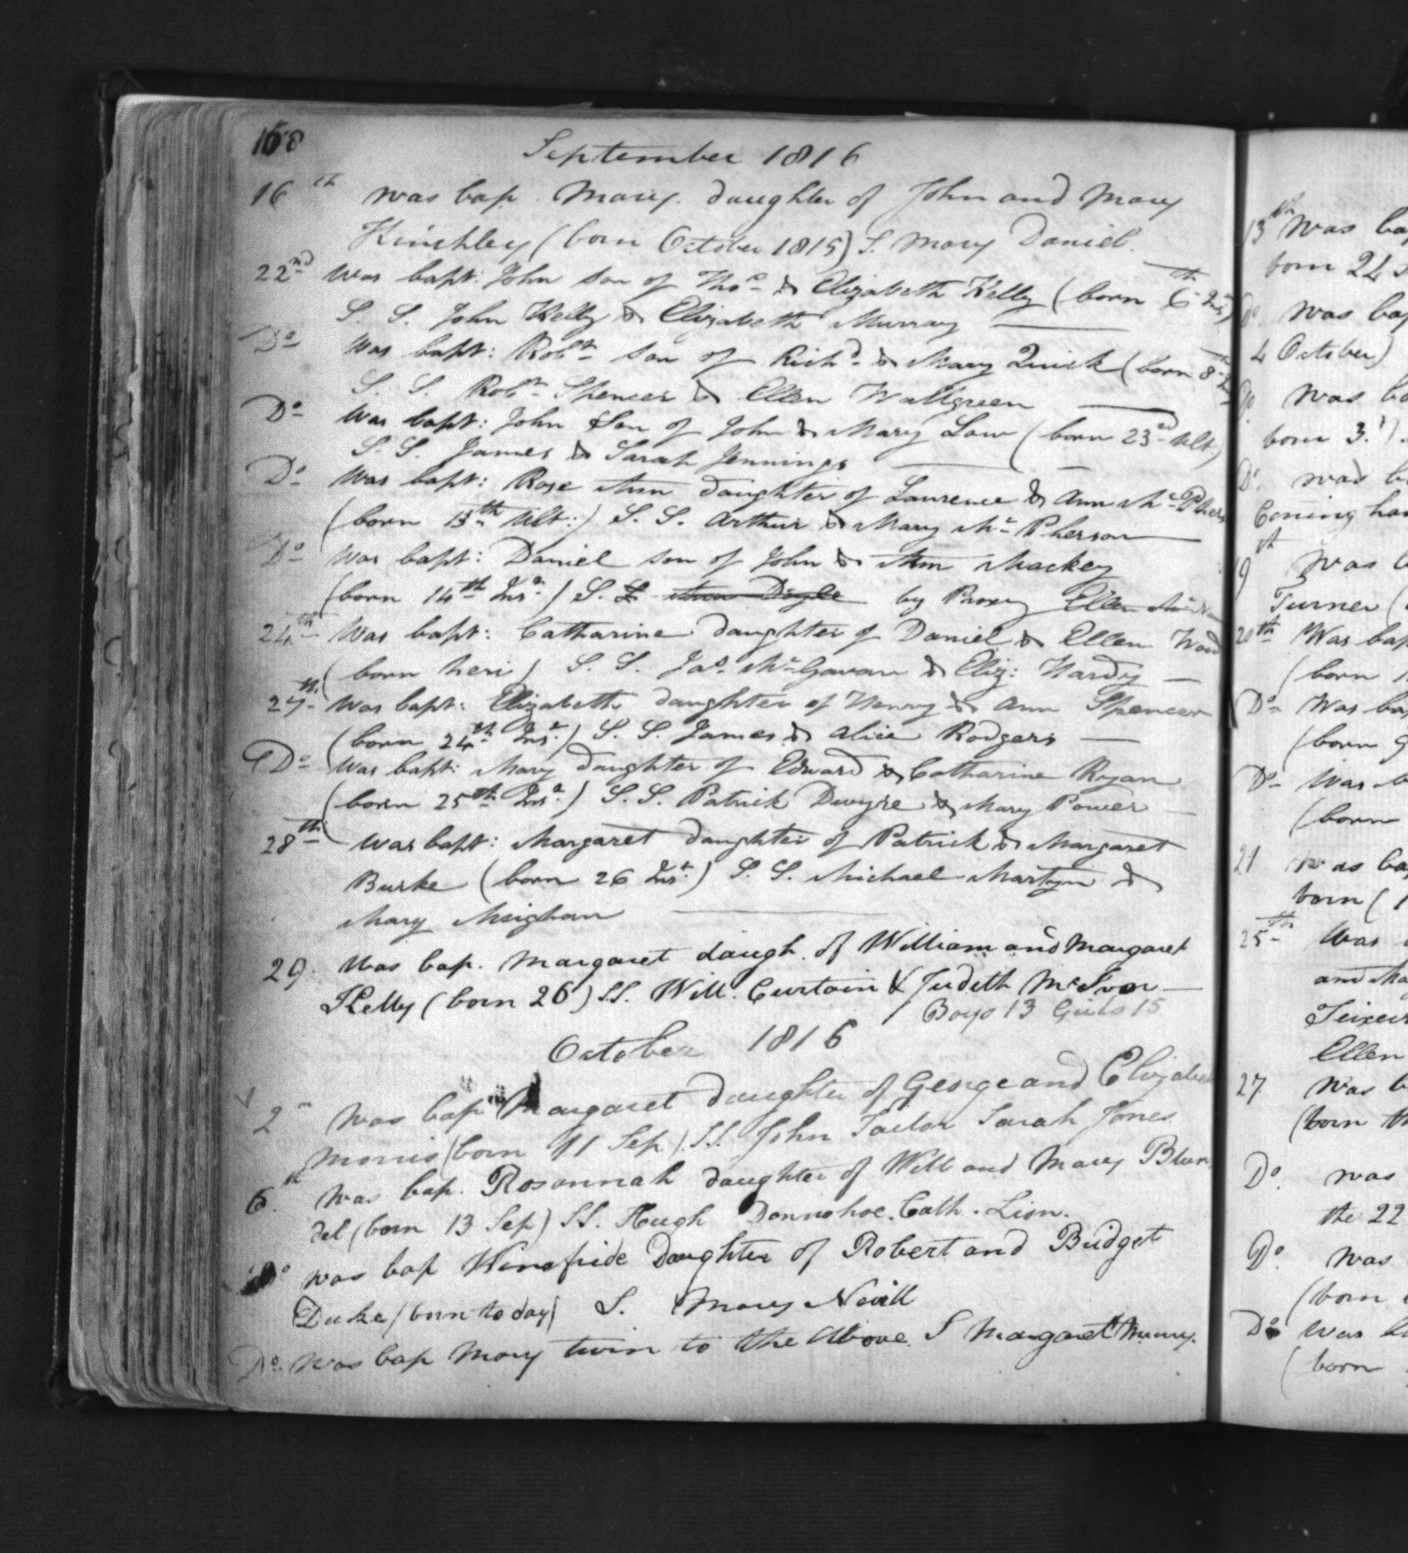 168
September 1816
16th was bap. Mary daughter of John and Mary
Kinchley (born October 1815) S. Mary Daniel.
22nd Was bapt: John son of Thos & Elizabeth Kelly (born 6th
S. S. John Kelly & Elizabeth Murray
Do Was bapt: Robt son of Richd & Mary Quick (born 8th
S. S. Robt Spencer & Ellen Wallgreen
Do Was bapt: John Son of John & Mary Law (born 23rd Ult.)
S. S. James & Sarah Jennings
Do Was bapt: Rose Ann daughter of Laurence & Ann
(born 13th Ult:) S. S. Arthur & Mary McPherson
Do Was bapt: Daniel son of John & Ann Mackey
(born 14th Inst) S. S. Ann Doyle by Proxy Ellen
24th Was bapt: Catharine daughter of Daniel & Ellen Ward
(born heri) S. S. Jas McGavan & Eliz: Hardy
27th Was bapt: Elizabeth daughter of Henry & Ann Spencer
(born 24th Inst) S. S. James & Alice Rodgers
Do Was bapt: Mary daughter of Edward & Catharine Ryan
(born 25th Inst) S. S. Patrick Dwyre & Mary Power
28th Was bapt: Margaret daughter of Patrick & Margaret
Burke (born 26 Inst) S. S. Michael Martyn &
Mary Meighan
29. Was bap. Margaret daugh. of William and Margaret
Kelly (born 26) SS. Will. Curtain & Judeth McIvor
Boys 13 Girls 15
October 1816
2 was bap Margaret daughter of George and Elizabeth
Morris (born 11 Sep) SS. John Taylor Sarah Jones
6th was bap. Rosannah daughter of Will and Mary Blun
del (born 13 Sep) SS. Hugh Donnohoe. Cath. Lion.
Do was bap Winefride Daughter of Robert and Bridget
Duke (born to day) S. Mary Nevill
Do. was bap Mary twin to the Above. S Margaret
13th was bap
born 24
Do. was bap
4 October)
Do was ba
born 3.
Do. was b
Coming ha
was b
Turner (
20th Was bap
(born 1
Do Was bap
(born 9
Do Was b
(born
21 was bap
born (1
25th Was
and Ma
Ellen
27 Was b
(born th
Do. was
the 22
Do. was
(born
Do Was b
(born